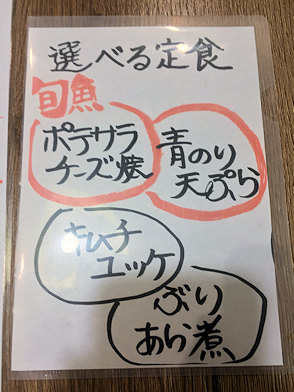 選べる定食
旬魚
ポテサラ
チーズ焼
青のり
天ぷら
キムチ
ユッケ
ぶり
あら煮